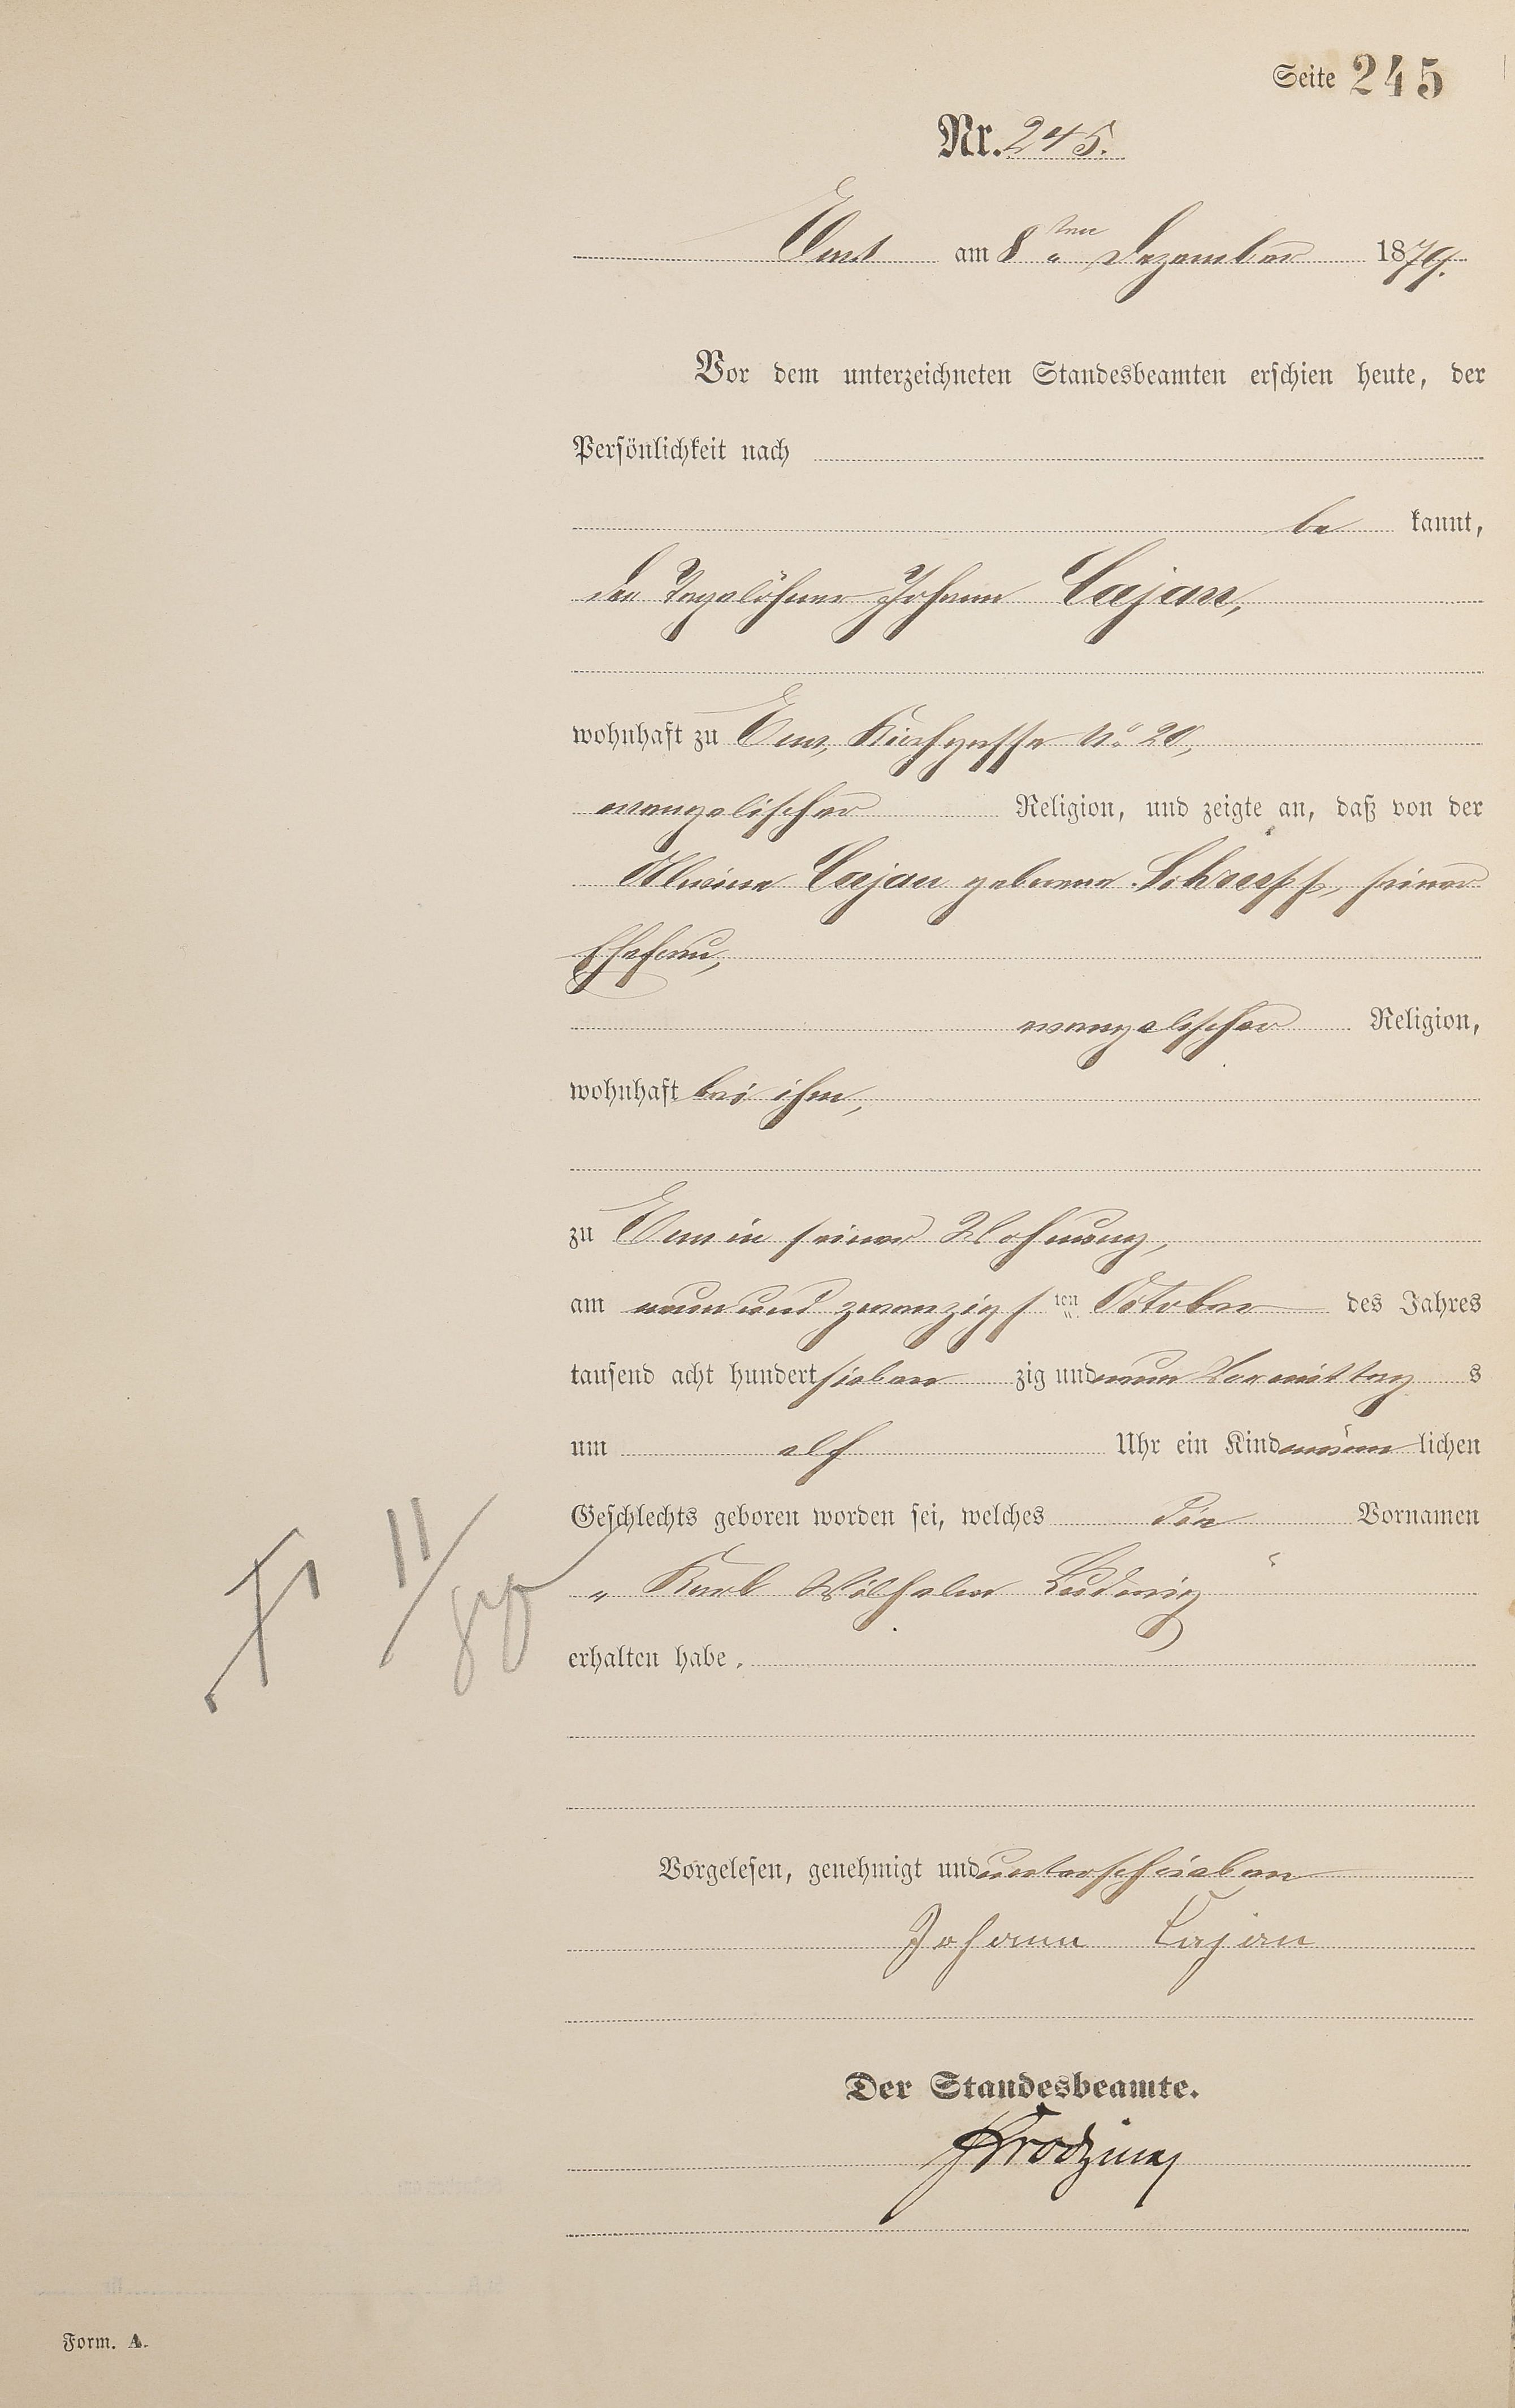 Seite 245
Nr. 245.
Ems am 8ten Dezember 1879.
Vor dem unterzeichneten Standesbeamten erschien heute, der
Persönlichkeit nach
be kannt,
der Tagelöhner Johann Cajan,
wohnhaft zu Ems, Kirchgasse No 20,
evangelischer Religion, und zeigte an, daß von der
Cajan geborene Schrupp, seiner
Ehefrau,
evangelischer Religion,
wohnhaft bei ihm,
zu Ems in seiner Wohnung,
am neun und zwanzigsten October des Jahres
tausend acht hundert sieben zig und neun Vormittag s
um elf Uhr ein Kind männ lichen
Geschlechts geboren worden sei, welches die Vornamen
„ Karl Wilhelm Ludwig “
erhalten habe.
Vorgelesen, genehmigt und unterschrieben
Johann Cajan
Der Standesbeamte.
Form. A.